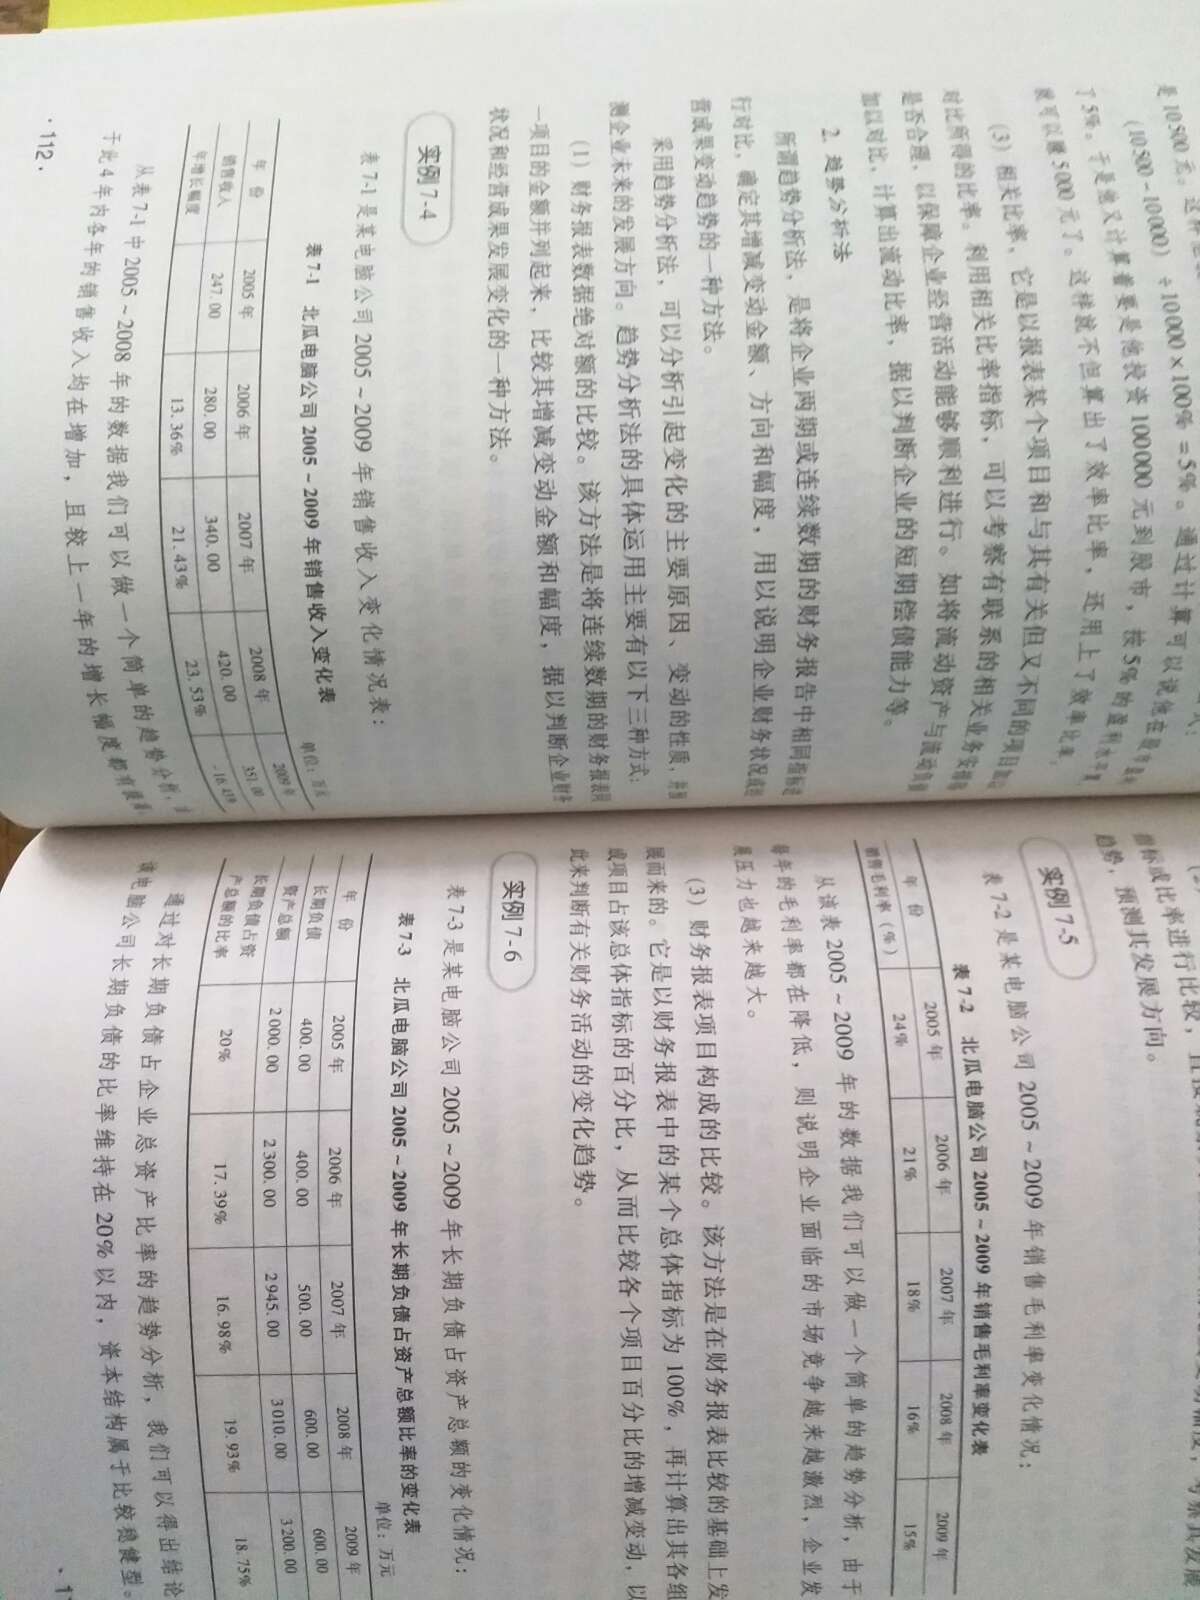 是10500元。这种
(10500-10000)÷10000×100%=5%。通过计算可以说他在股市盈利
了5%。于是他又计算着要是他投资100000元到股市，按5%的盈利水平算
就可以赚5000元了。这样就不但算出了效率比率，还用上了效率比率。
(3)相关比率，它是以报表某个项目和与其有关但又不同的项目加以
对比所得的比率。利用相关比率指标，可以考察有联系的相关业务安排得
是否合理，以保障企业经营活动能够顺利进行。如将流动资产与流动负债
加以对比，计算出流动比率，据以判断企业的短期偿债能力等。
2. 趋势分析法
所谓趋势分析法，是将企业两期或连续数期的财务报告中相同指标进
行对比，确定其增减变动金额、方向和幅度，用以说明企业财务状况或经
营成果变动趋势的一种方法。
采用趋势分析法，可以分析引起变化的主要原因、变动的性质，并预
测企业未来的发展方向。趋势分析法的具体运用主要有以下三种方式：
(1)财务报表数据绝对额的比较。该方法是将连续数期的财务报表同
一项目的金额并列起来，比较其增减变动金额和幅度，据以判断企业财务
状况和经营成果发展变化的一种方法。
实例7-4
表7-1是某电脑公司2005~2009年销售收入变化情况表：
表7-1 北瓜电脑公司2005~2009年销售收入变化表
单位：万元
年 份 2005年 2006年 2007年 2008年 2009年
销售收入 247.00 280.00 340.00 420.00 351.00
年增长幅度 13.36% 21.43% 23.53% -16.43%
从表7-1中2005~2008年的数据我们可以做一个简单的趋势分析，由
于此4年内各年的销售收入均在增加，且较上一年的增长幅度都有很
·112·
指标或比率进行比较，直接
趋势，预测其发展方向。
实例7-5
表7-2是某电脑公司2005~2009年销售毛利率变化情况：
表7-2 北瓜电脑公司2005~2009年销售毛利率变化表
年 份 2005年 2006年 2007年 2008年 2009年
销售毛利率(%) 24% 21% 18% 16% 15%
从该表2005~2009年的数据我们可以做一个简单的趋势分析，由于
每年的毛利率都在降低，则说明企业面临的市场竞争越来越激烈，企业发
展压力也越来越大。
(3)财务报表项目构成的比较。该方法是在财务报表比较的基础上发
展而来的。它是以财务报表中的某个总体指标为100%，再计算出其各组
成项目占该总体指标的百分比，从而比较各个项目百分比的增减变动，以
此来判断有关财务活动的变化趋势。
实例7-6
表7-3是某电脑公司2005~2009年长期负债占资产总额的变化情况：
表7-3 北瓜电脑公司2005~2009年长期负债占资产总额比率的变化表
单位：万元
年 份 2005年 2006年 2007年 2008年 2009年
长期负债 400.00 400.00 500.00 600.00 600.00
资产总额 2000.00 2300.00 2945.00 3010.00 3200.00
长期负债占资
产总额的比率 20% 17.39% 16.98% 19.93% 18.75%
通过对长期负债占企业总资产比率的趋势分析，我们可以得出结论
该电脑公司长期负债的比率维持在20%以内，资本结构属于比较稳健型。